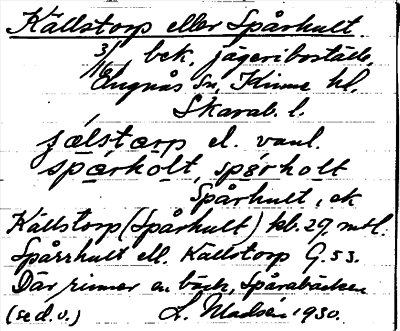 Källstorp eller Spårhult
3/16 bek. jägeribostäde,
Lugnås sn, Kinne hd.
Skarab. l.
sälstarp el. vanl.
spårhólt, spórholt
Spårhult, ek
Källstorp (Spårhult) kb. 29. mtl.
Spårrhult ell. Källstorp G. 53.
Där rinner en bäck, Spårabäcken
(se d. o.) L. Madsén 1930.